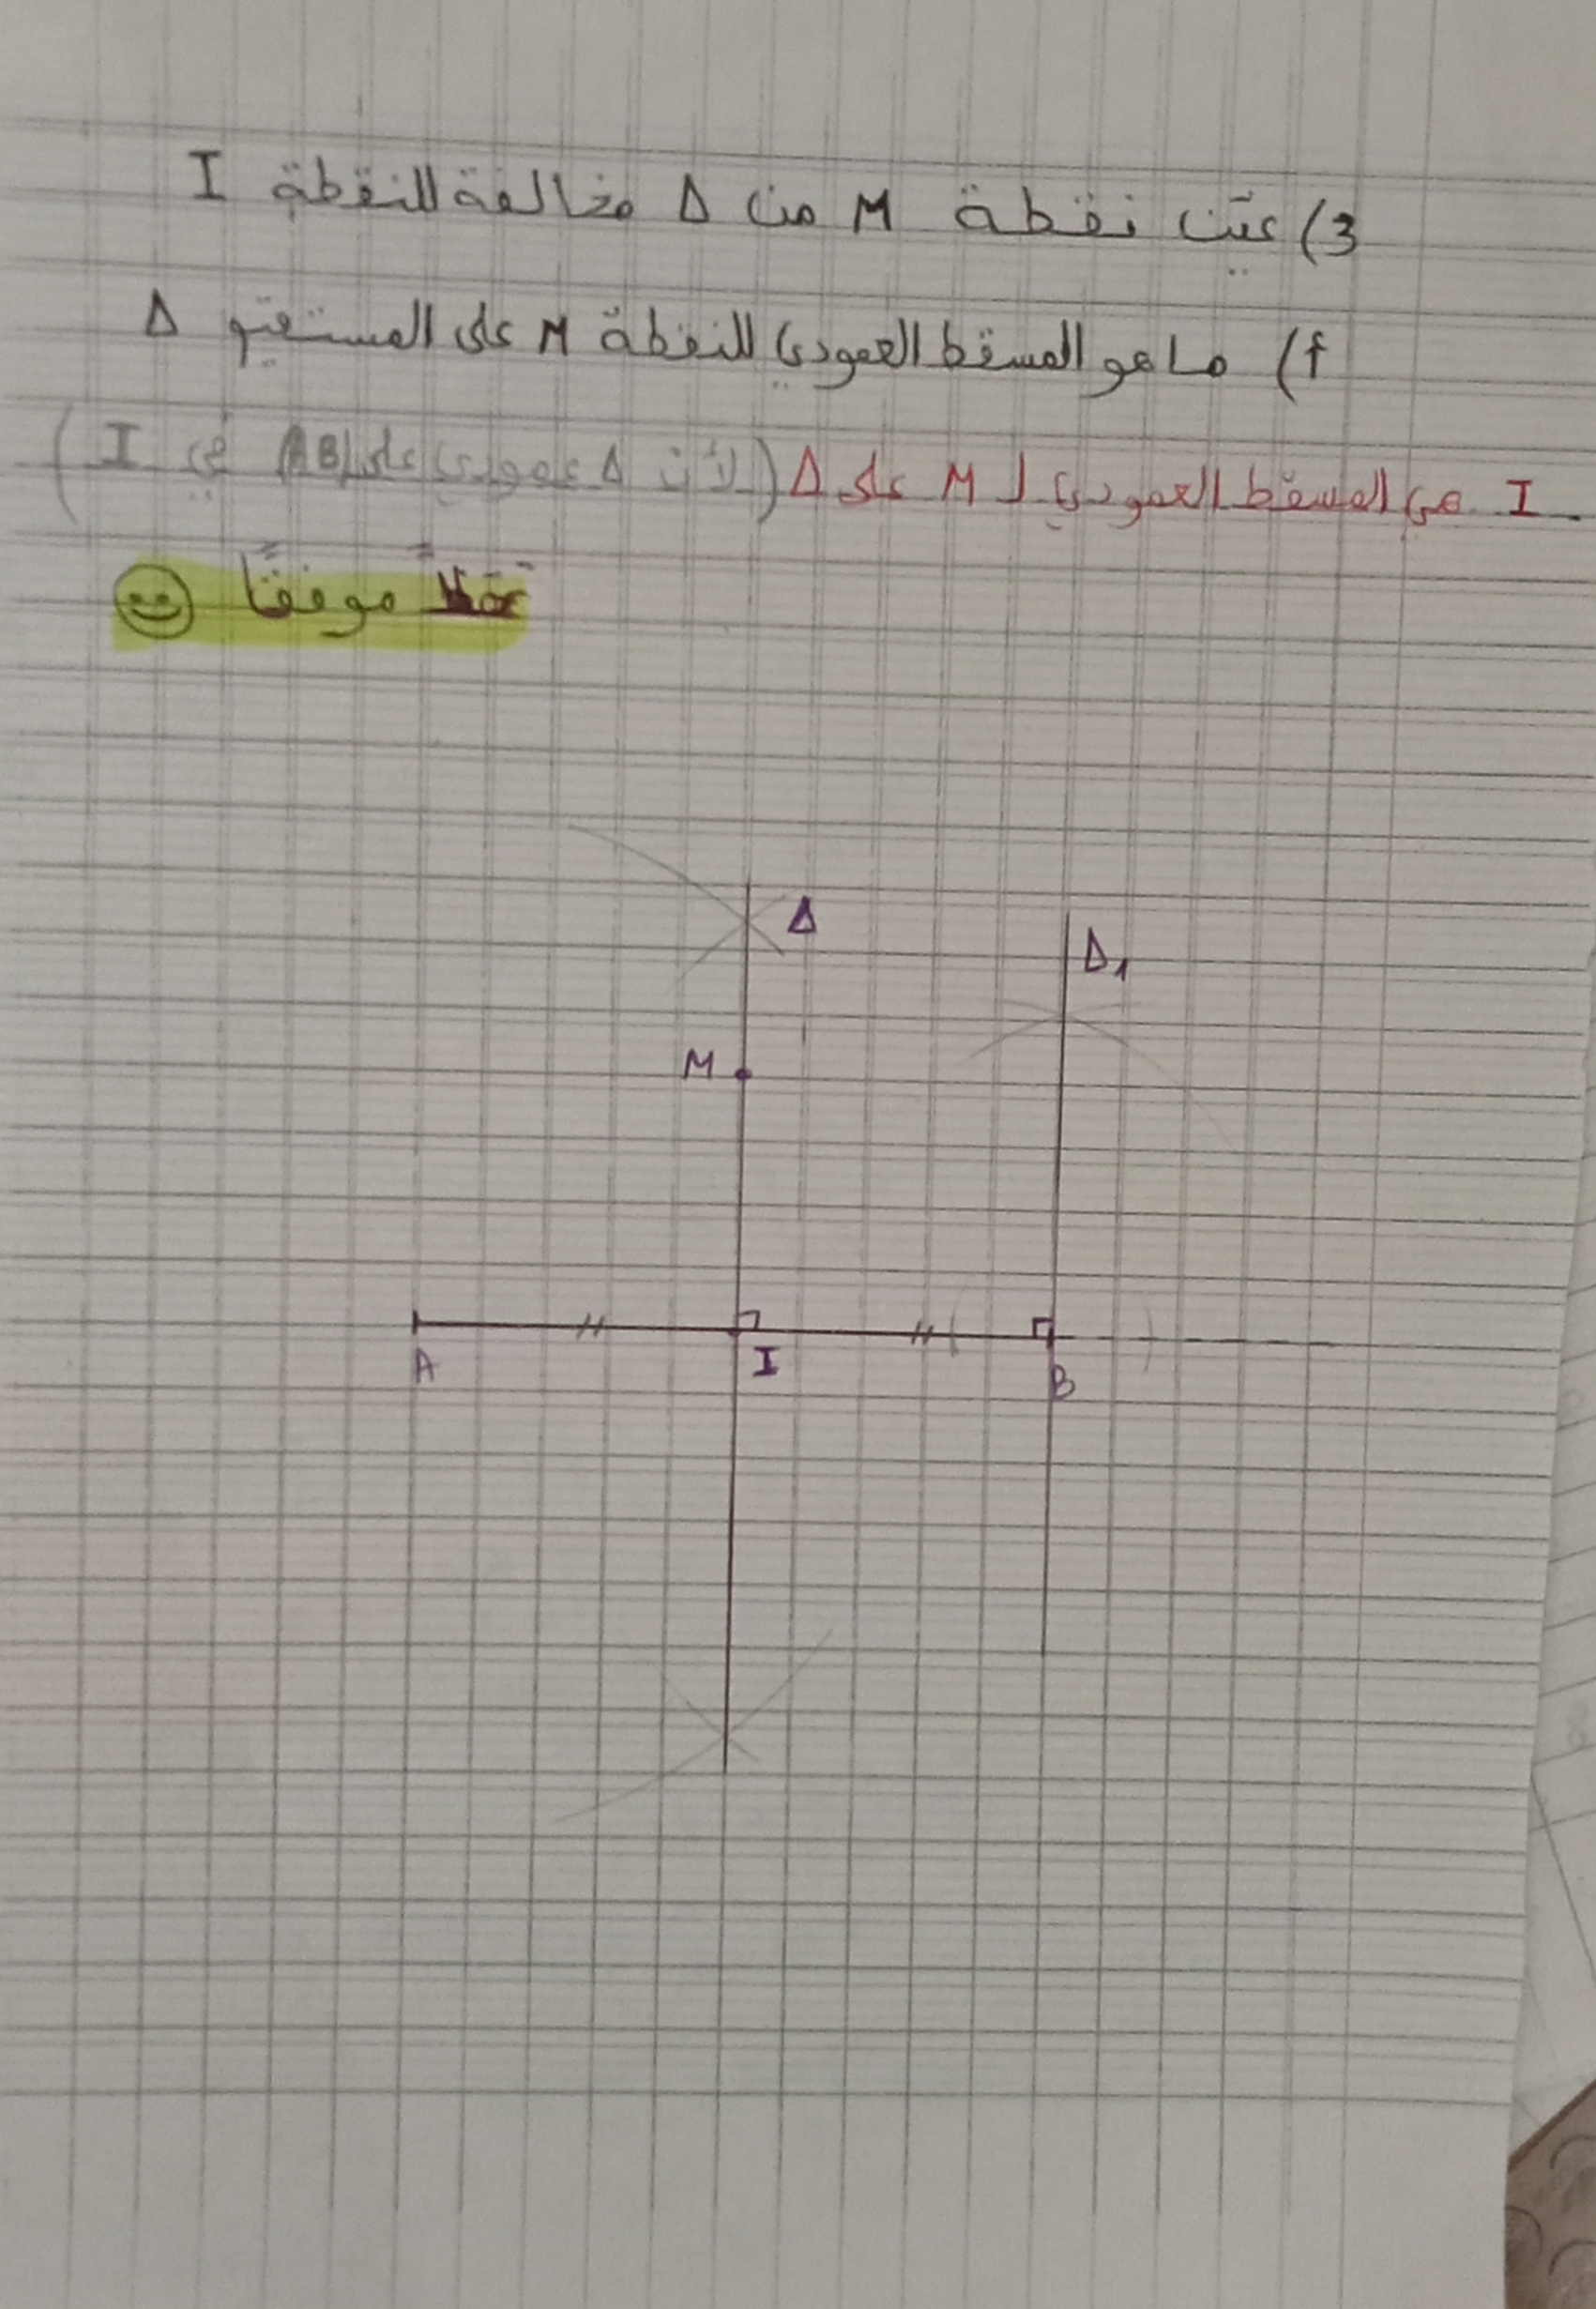 3) عيّن نقطة M من Δ مخالفة للنقطة I
أ) ما هو المسقط العمودي للنقطة M على المستقيم Δ
I هي المسقط العمودي لـ M على Δ (لأن Δ عمودي على (AB) في I)
عملاً موفقًا
Δ
Δ1
M
A
I
B